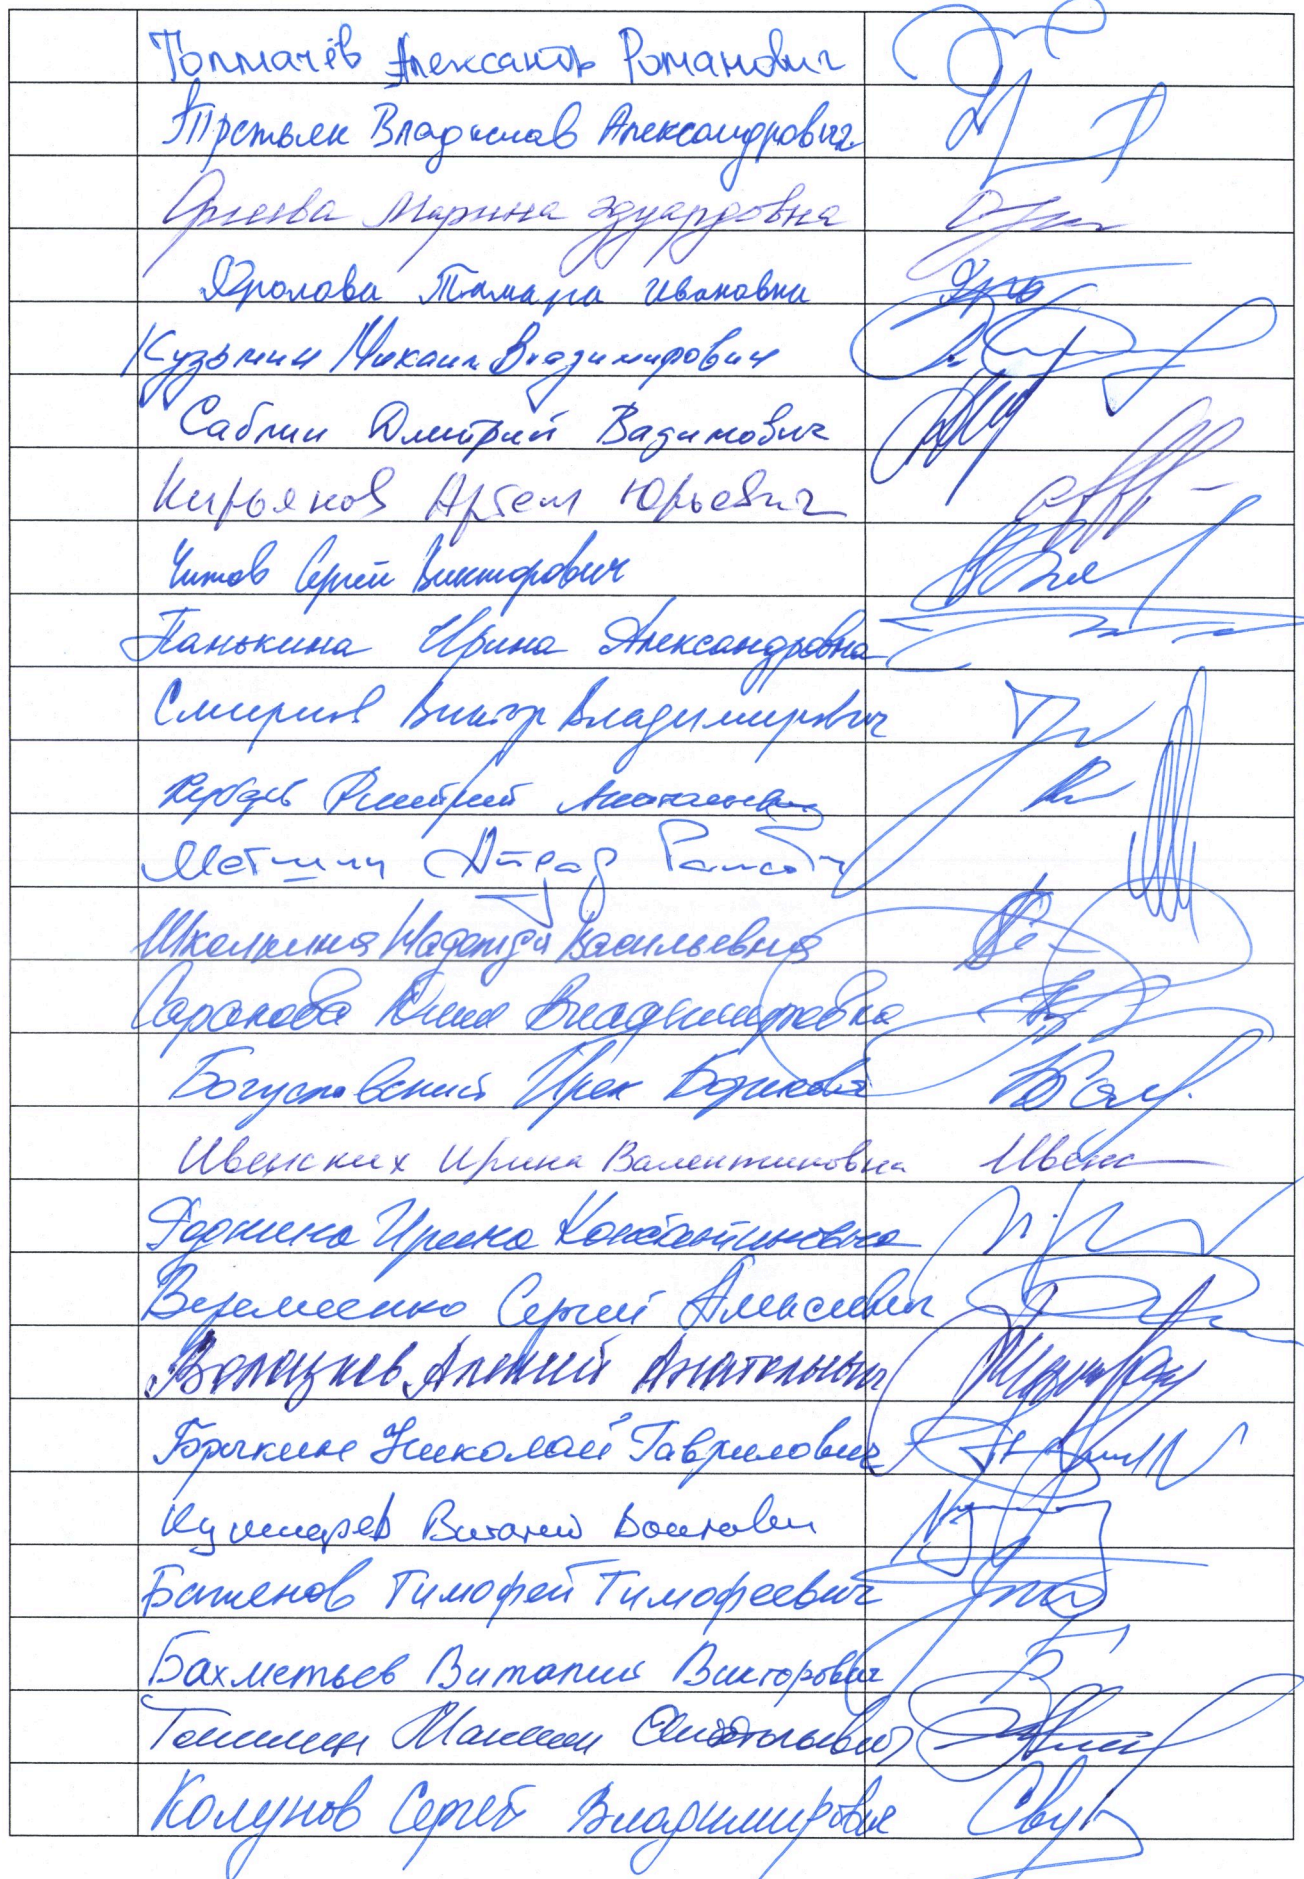 Толмачёв Александр Романович
Третьяк Владислав Александрович
Оргеева Марина Эдуардовна
Фролова Тамара Ивановна
Кузьмин Михаил Владимирович
Саблин Дмитрий Вадимович
Кирьянов Артем Юрьевич
Читов Сергей Викторович
Панькина Ирина Александровна
Смирнов Виктор Владимирович
Дмитрий
Метшин Айрат
Школкина Надежда Васильевна
Саранова Юлия Владимировна
Богуславский Ирек Борисович
Ивенских Ирина Валентиновна Ивенс
Роднина Ирина Константиновна
Веремеенко Сергей Алексеевич
Волоцков Алексей Анатольевич
Брыкин Николай Гаврилович
Кушнарев Виталий
Баженов Тимофей Тимофеевич
Бахметьев Виталий Викторович
Топилин Максим Анатольевич
Колунов Сергей Владимирович